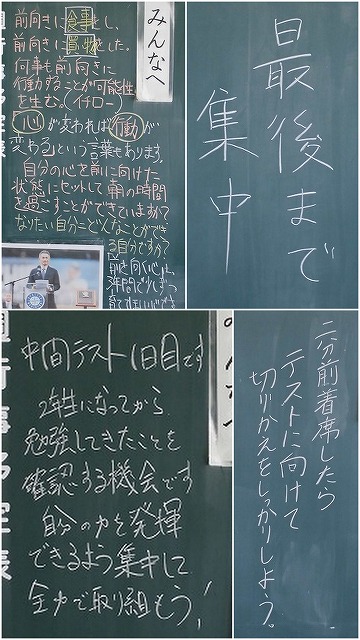 みんなへ
前向きに食事をし、
前向きに買い物をした。
何事も前向きに
行動することが可能性
を生む。(イチロー)
「心」が変われば行動が
変わる」という言葉もあります。
自分の心を前に向けた
状態にセットして朝の時間
を過ごすことができていますか?
なりたい自分=どんなことができ
る自分ですか?
前を向く心
最後まで
集中
中間テスト1日目です
2年生になってから
勉強してきたことを
確認する機会です
自分の力を発揮
できるよう集中して
全力で取り組もう!
みんなへ
二分前着席したら
テストに向けて
切りかえをしっかりしよう。